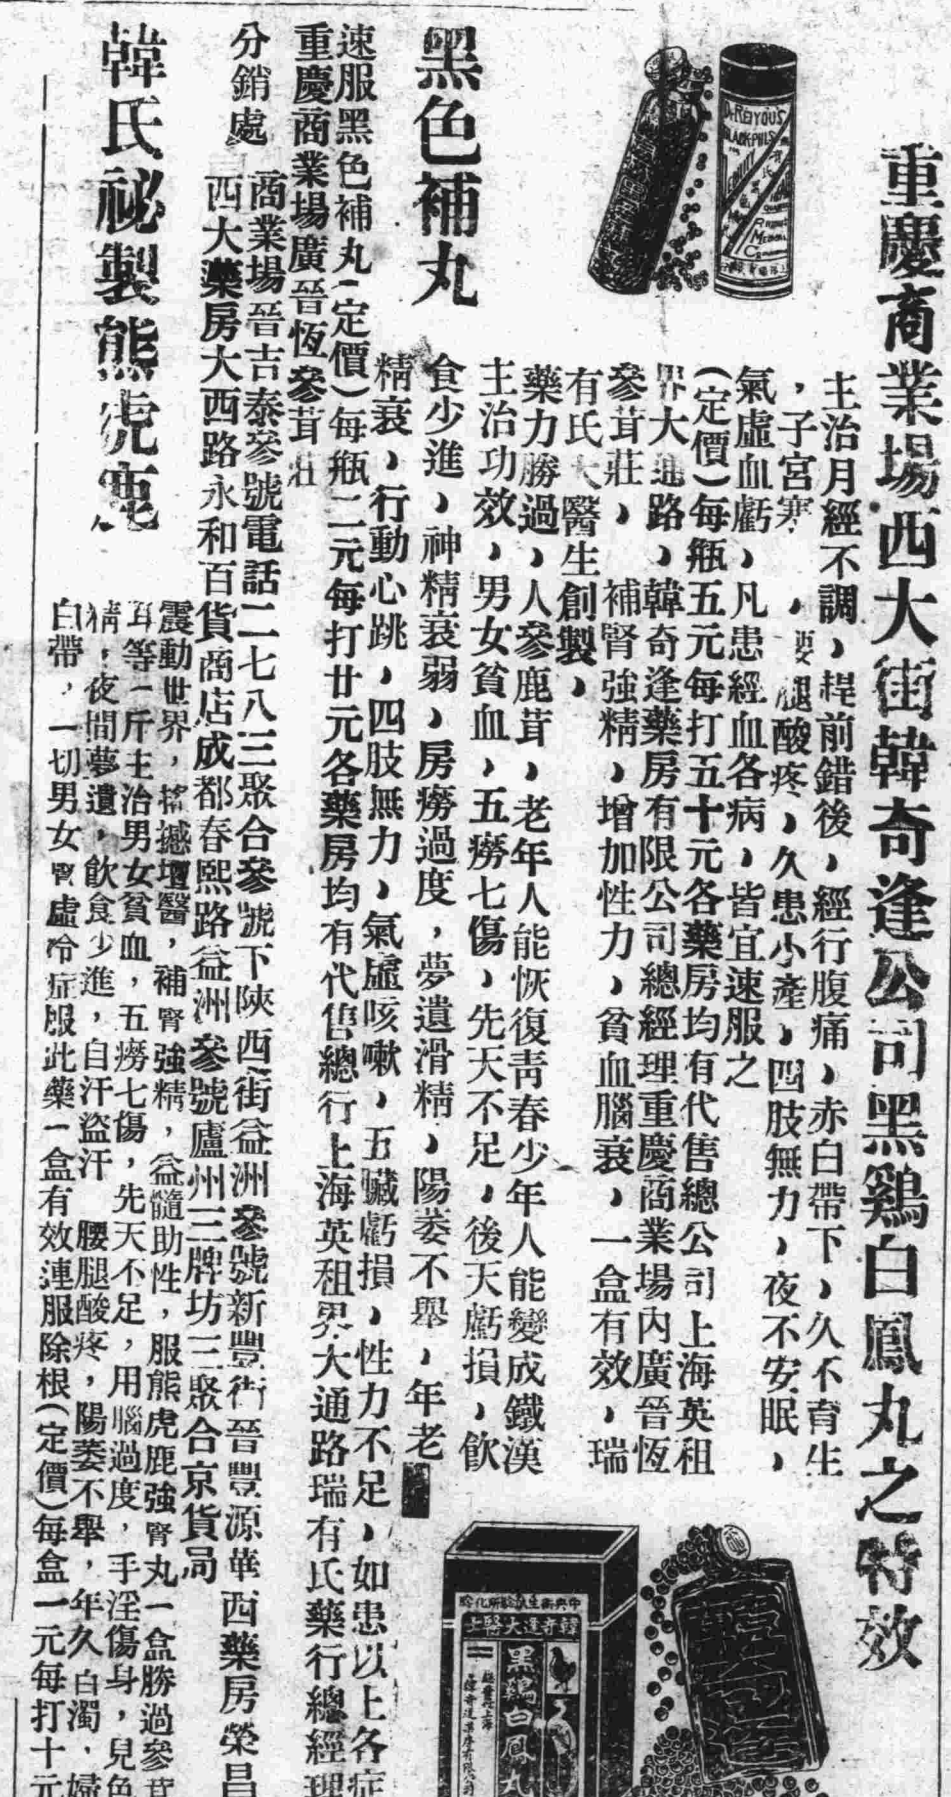 重慶商業場西大街韓奇逢公司黑鷄白鳳丸之特效
主治月經不調，趕前錯後，經行腹痛，赤白帶下，久不育生
，子宮寒，腿酸疼，久患小產，四肢無力，夜不安眠，
氣虛血虧，凡患經血各病，皆宜速服之
（定價）每瓶五元每打五十元各藥房均有代售總公司上海英租
界大通路，韓奇逢藥房有限公司總經理重慶商業場內廣晉恆
參茸莊， 補腎強精，增加性力，貧血腦衰，一盒有效，瑞
有氏大醫生創製，
藥力勝過，人參鹿茸，老年人能恢復靑春少年人能變成鐵漢
主治功效，男女貧血，五癆七傷，先天不足，後天虧損，飲
食少進，神精衰弱，房癆過度，夢遺滑精，陽萎不舉，年老
精衰，行動心跳，四肢無力，氣虛咳嗽，五臟虧損，性力不足，如患以上各症
黑色補丸
速服黑色補丸（定價）每瓶二元每打廿元各藥房均有代售總行上海英租界大通路瑞有氏藥行總經理
重慶商業場廣晉恆參茸莊
分銷處
商業場晉吉泰參號電話二七八三聚合參號下陝西街益洲參號新豐街晉豐源華西藥房榮昌
西大藥房大西路永和百貨商店成都春熙路益洲參號廬州三牌坊三聚合京貨局
韓氏祕製熊虎鹿
震動世界，搖撼壇醫，補腎強精，益髓助性，服熊虎鹿強腎丸一盒勝過參茸
耳等一斤主治男女貧血，五癆七傷，先天不足，用腦過度，手淫傷身，兒色
精，夜間夢遺，飲食少進，自汗盜汗 腰腿酸疼，陽萎不舉，年久白濁，婦
白帶，一切男女腎虛冷症服此藥一盒有效連服除根（定價）每盒一元每打十元
DR REIYOU'S
BLACK PILLS
韓奇逢大醫士
黑鷄白鳳丸